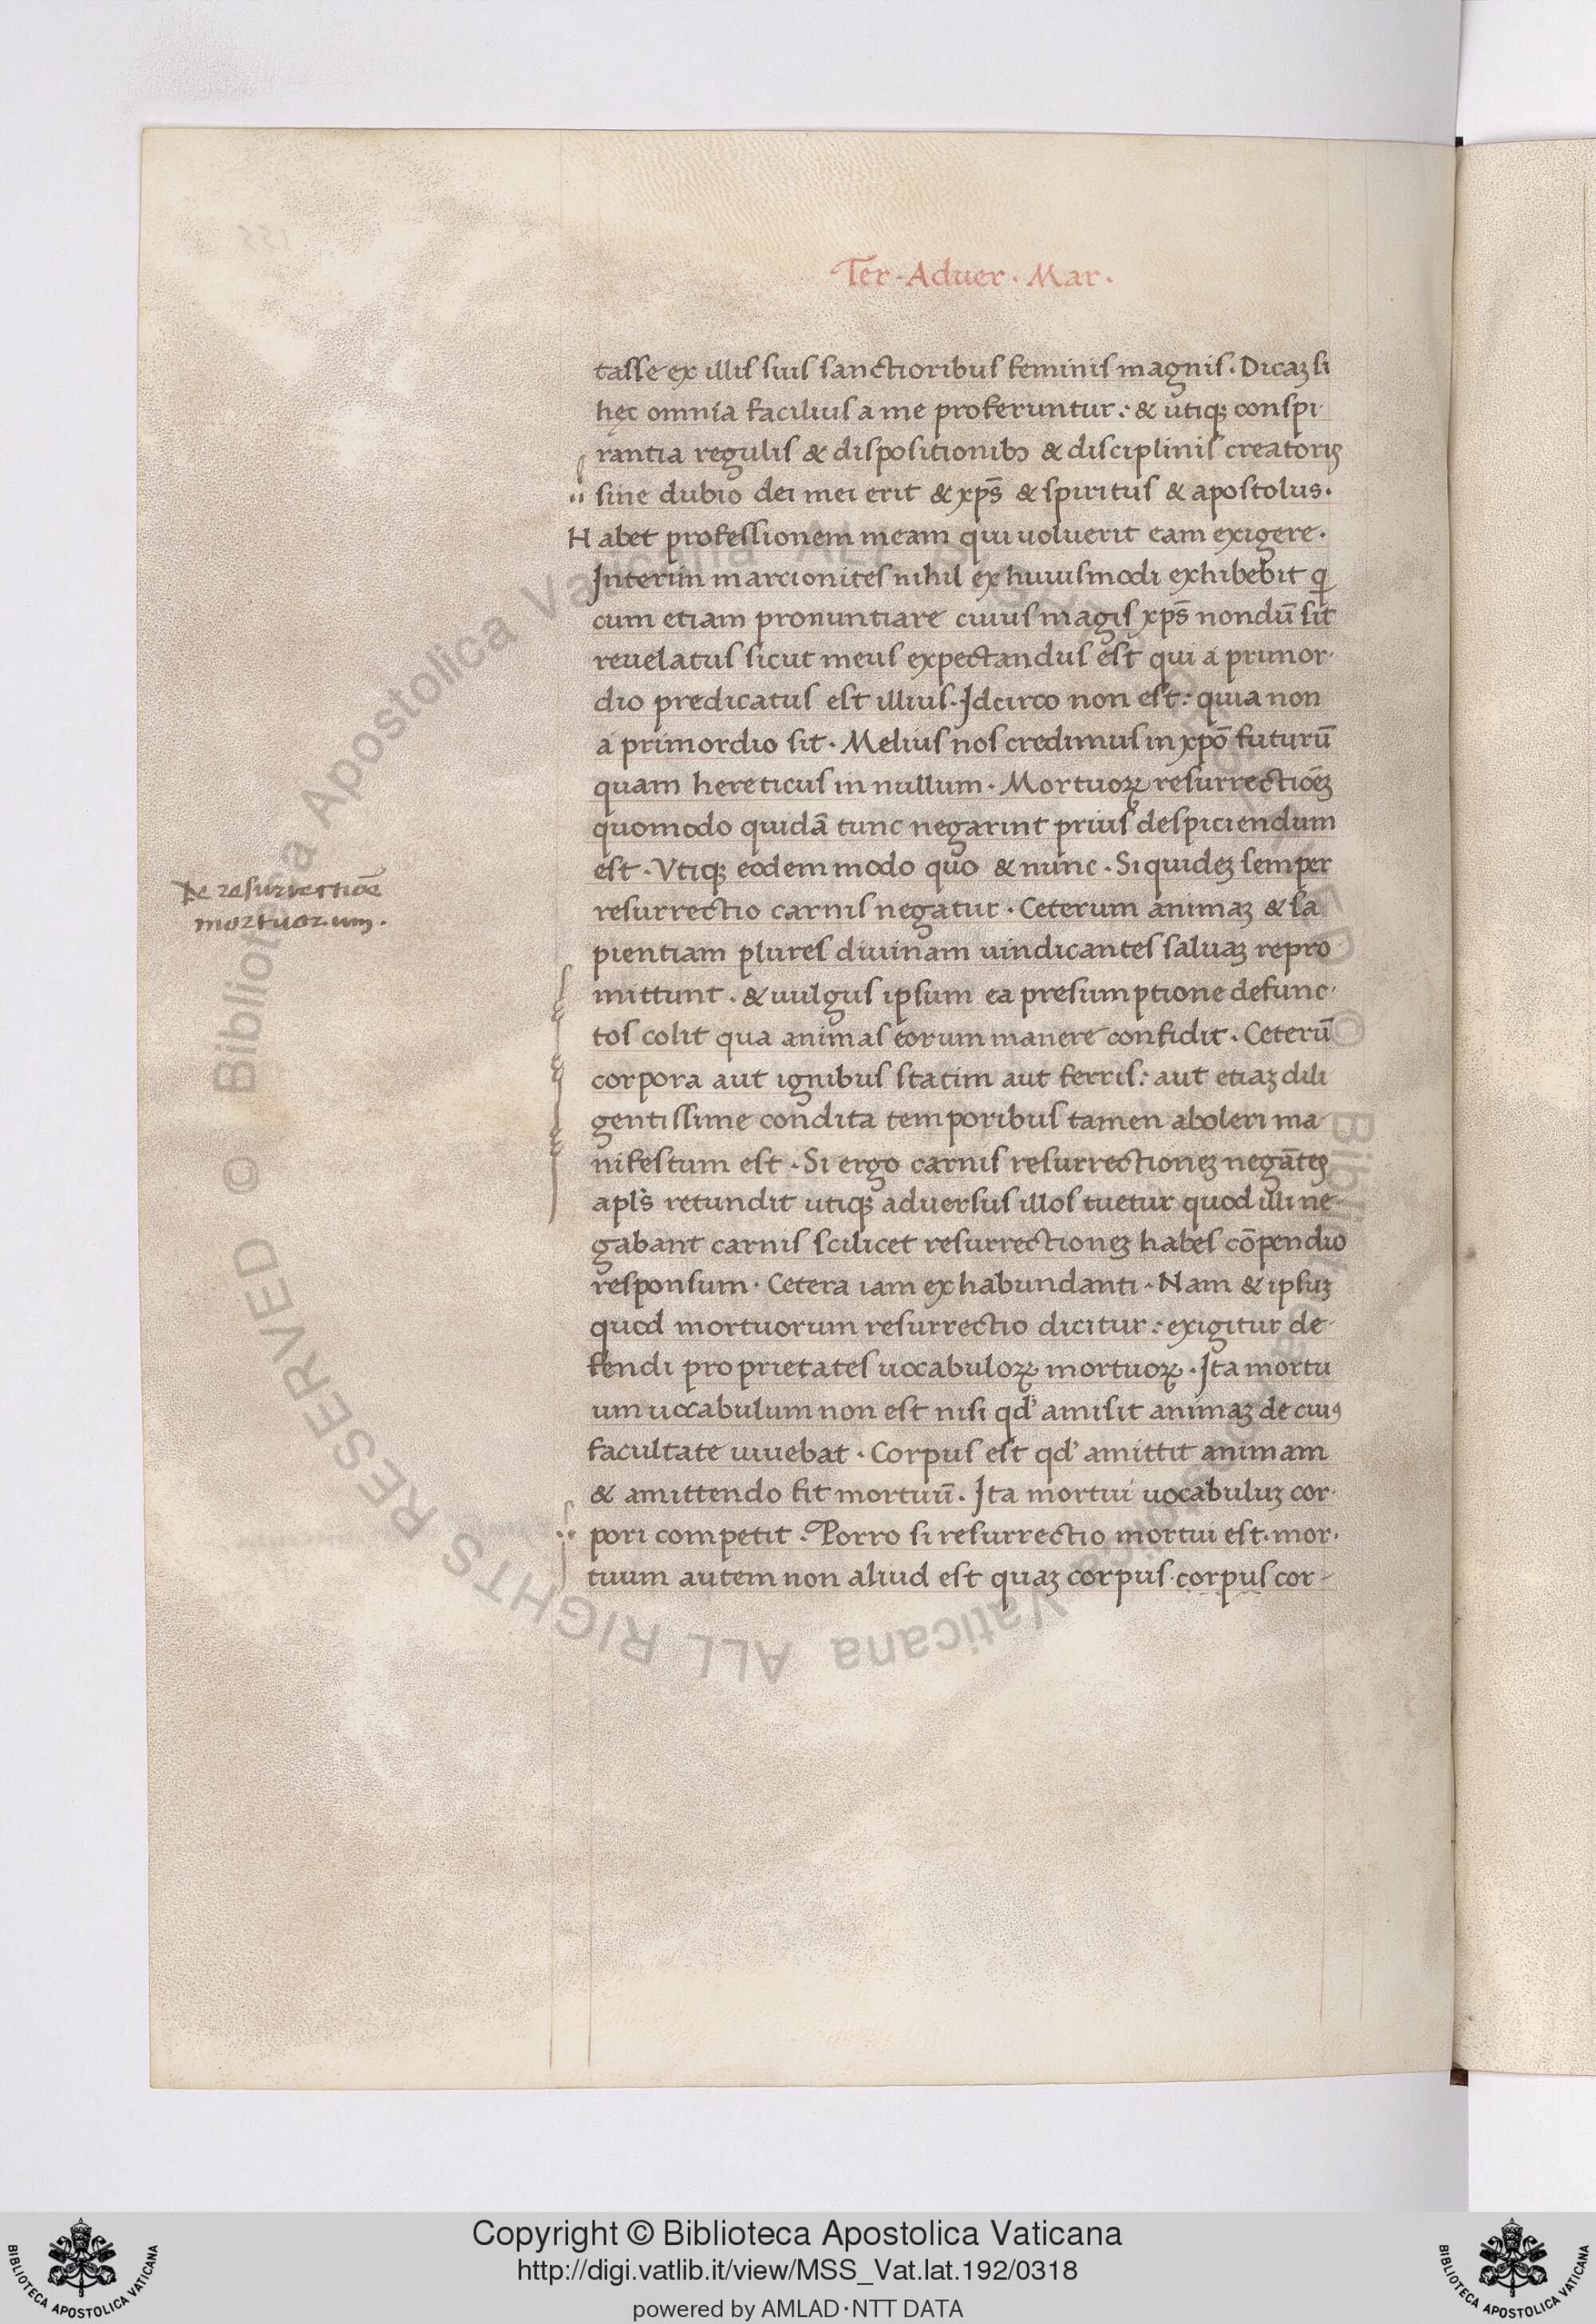 Ter. Aduer. Mar.
tasse ex illis suis sanctioribus feminis magnis. Dicaꝫ si
hęc omnia facilius a me proferuntur: & utiqꝫ conspi
rantia regulis & dispositionibꝯ & disciplinis creatoris
sine dubio dei mei erit & xp̄s & spiritus & apostolus.
Habet professionem meam qui uoluerit eam exigere.
Interim marcionites nihil ex huiusmodi exhibebit q
cum etiam pronuntiare cuius magis xp̄s nondū sit
reuelatus sicut meus expectandus est qui a primor
dio predicatus est illius. Idcirco non est: quia non
a primordio sit. Melius nos credimus in xpō futurū
quam hereticus in nullum. Mortuoꝝ resurrectiōeꝫ
quomodo quidā tunc negarint prius despiciendum
est. Vtiqꝫ eodem modo quo & nunc. Siquideꝫ semper
resurrectio carnis negatur. Ceterum animaꝫ & sa
pientiam plures diuinam uindicantes saluaꝫ repro
mittunt. & uulgus ipsum ea presumptione defunc
tos colit qua animas eorum manere confidit. Ceterū
corpora aut ignibus statim aut ferris: aut etiaꝫ dili
gentissime condita temporibus tamen aboleri ma
nifestum est. Si ergo carnis resurrectioneꝫ negātes
apl's retundit utiqꝫ aduersus illos tuetur quod illi ne
gabant carnis scilicet resurrectioneꝫ habes cōpendio
responsum. Cetera iam ex habundanti. Nam & ipsuꝫ
quod mortuorum resurrectio dicitur: exigitur de
fendi proprietates uocabuloꝝ mortuoꝝ. Ita mortu
um uocabulum non est nisi qd' amisit animaꝫ de cuiꝰ
facultate uiuebat. Corpus est qd' amittit animam
& amittendo fit mortuū. Ita mortui uocabuluꝫ cor
pori competit. Porro si resurrectio mortui est. mor
tuum autem non aliud est quaꝫ corpus. corpus cor
De resurrectiōe
mortuorum.
Copyright © Biblioteca Apostolica Vaticana
http://digi.vatlib.it/view/MSS_Vat.lat.192/0318
powered by AMLAD·NTT DATA
BIBLIOTECA APOSTOLICA VATICANA
BIBLIOTECA APOSTOLICA VATICANA
© Biblioteca Apostolica Vaticana ALL RIGHTS RESERVED © Biblioteca Apostolica Vaticana ALL RIGHTS RESERVED